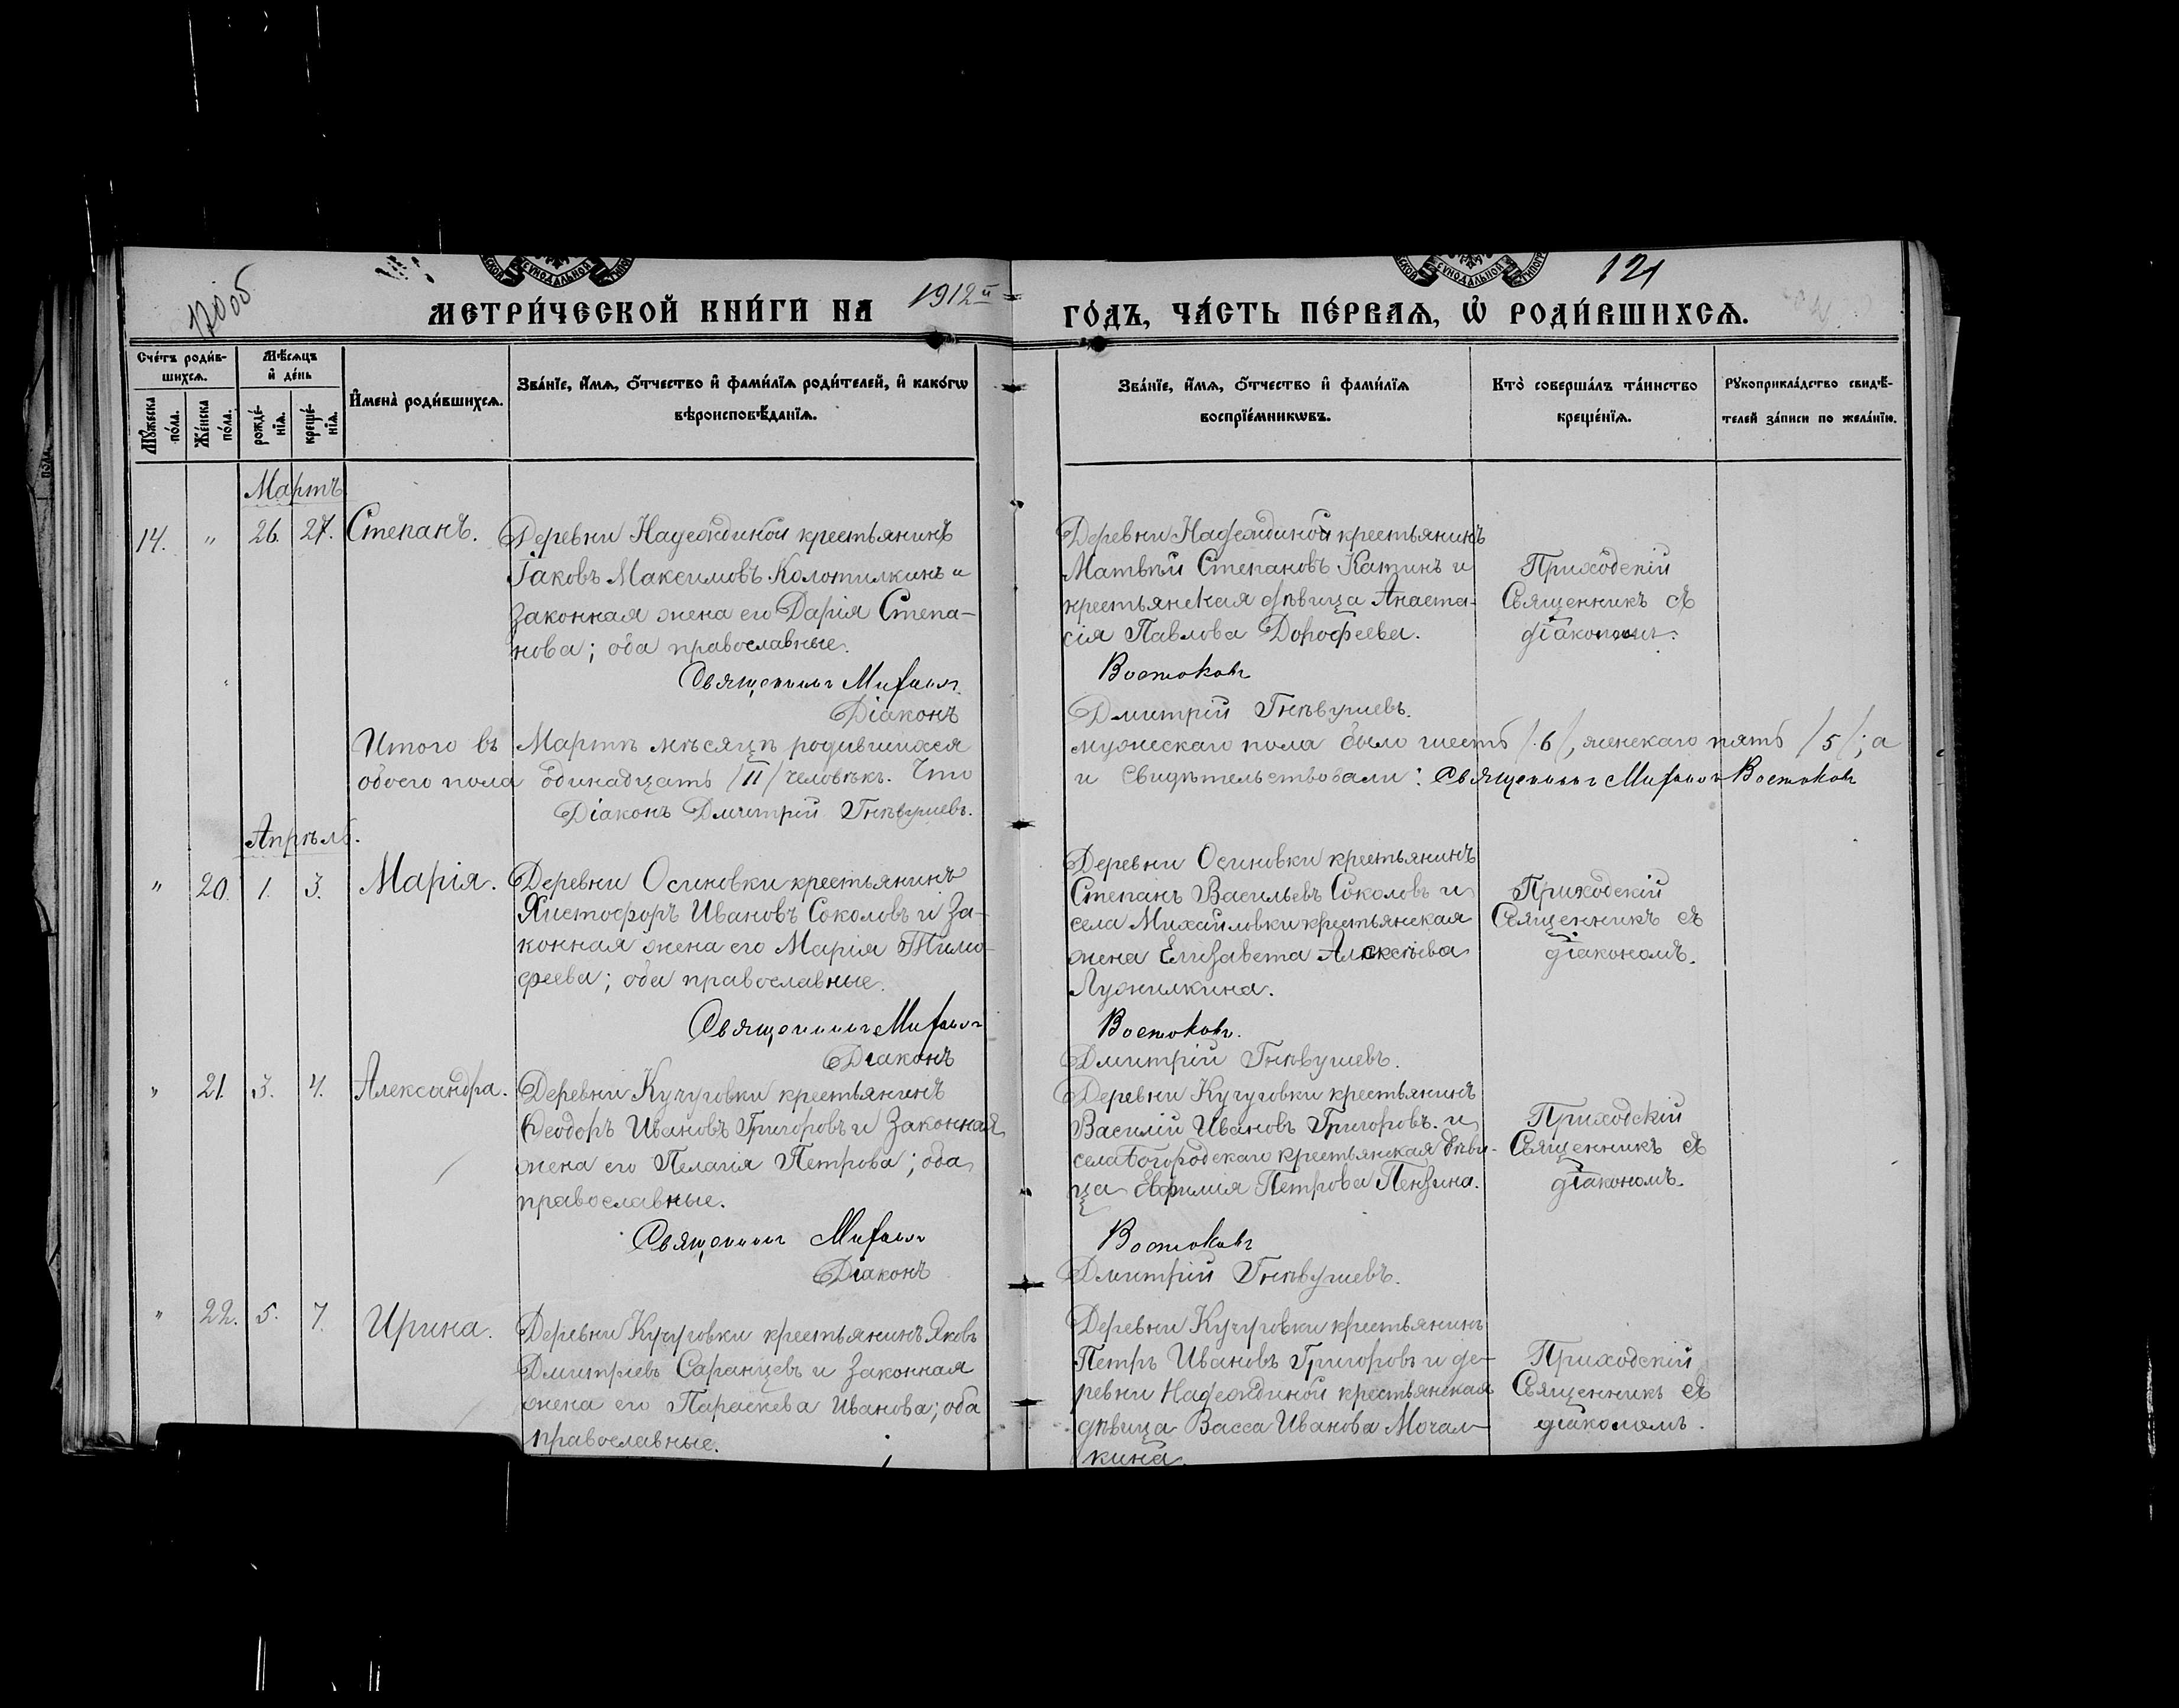 120об
121
МЕТРИ́ЧЕСКОЙ КНИ́ГИ НА 1912й ГО́ДЪ, ЧА́СТЬ ПЕ́РВАЯ, Ѡ҆ РОДИ́ВШИХСЯ.
Сче́тъ роди́в-
шихся.
Мѣ́сяцъ
и҆ де́нь
Мꙋ́жеска
по́ла.
Же́нска
по́ла.
рожде́-
нїя.
креще́-
нїя.
И҆мена̀ роди́вшихся.
Зва́нїе, и҆́мя, ѻ҆́тчество и҆ фами́лїя роди́телей, и҆ како́гѡ
вѣроисповѣ́данїя.
Зва́нїе, и҆́мя, ѻ҆́тчество и҆ фами́лїя
воспрїе́мникѡвъ.
Кто̀ соверша́лъ та́инство
креще́нїя.
Рꙋкоприкла́дство свидѣ́-
телей за́писи по жела́нїю.
Мартъ
14. " 26. 27. Степанъ.
Деревни Надеждиной крестьянинъ
Іаковъ Максимовъ Колотилкинъ и
законная жена его Дарія Степа-
нова; оба православные.
Священникъ Михаилъ
Діаконъ
Деревни Надеждиной крестьянинъ
Матвѣй Степановъ Катинъ и
крестьянская дѣвица Анаста-
сія Павлова Дорофеева.
Востоковъ
Дмитрій Гнѣвушевъ.
Приходскій
Священникъ съ
діакономъ.
Итого въ Мартѣ мѣсяцѣ родившихся мужескаго пола было шесть /6/, женскаго пять /5/; а
обоего пола одинадцать /11/ человѣкъ. Что и свидѣтельствовали: Священникъ Михаилъ Востоковъ
Діаконъ Дмитрій Гнѣвушевъ.
Апрѣль.
" 20. 1. 3. Марія.
Деревни Осиновки крестьянинъ
Христофоръ Ивановъ Соколовъ и за-
конная жена его Марія Тимо-
феева; оба православные.
Священникъ Михаилъ
Діаконъ
Деревни Осиновки крестьянинъ
Степанъ Васильевъ Соколовъ и
села Михайловки крестьянская
жена Елизавета Алексѣева
Лужилкина.
Востоковъ.
Дмитрій Гнѣвушевъ.
Приходскій
Священникъ съ
діакономъ.
" 21. 3. 4. Александра.
Деревни Кучуговки крестьянинъ
Ѳеодоръ Ивановъ Григоровъ и законная
жена его Пелагія Петрова; оба
православные.
Священникъ Михаилъ
Діаконъ
Деревни Кучуговки крестьянинъ
Василій Ивановъ Григоровъ и
села Богородскаго крестьянская дѣви-
ца Евфимія Петрова Пензина.
Востоковъ
Дмитрій Гнѣвушевъ.
Приходскій
Священникъ съ
діакономъ.
" 22. 5. 7. Ирина.
Деревни Кучуговки крестьянинъ Яковъ
Дмитріевъ Саранцевъ и законная
жена его Параскева Иванова; оба
православные.
Деревни Кучуговки крестьянинъ
Петръ Ивановъ Григоровъ и де-
ревни Надеждиной крестьянская
дѣвица Васса Иванова Мочал-
кина.
Приходскій
Священникъ съ
діакономъ.